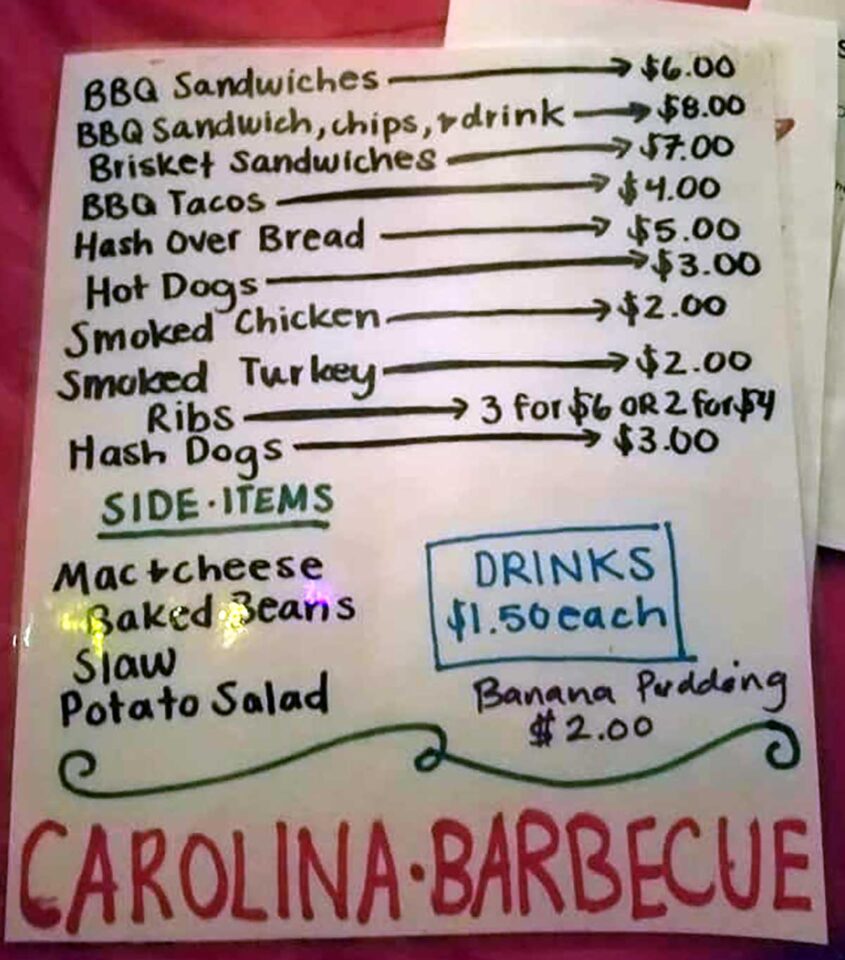 BBQ Sandwiches → $6.00
BBQ Sandwich, chips, + drink → $8.00
Brisket Sandwiches → $7.00
BBQ Tacos → $4.00
Hash Over Bread → $5.00
Hot Dogs → $3.00
Smoked Chicken → $2.00
Smoked Turkey → $2.00
Ribs → 3 for $6 OR 2 for $4
Hash Dogs → $3.00
SIDE·ITEMS
Mac + cheese
Baked Beans
Slaw
Potato Salad
DRINKS
$1.50 each
Banana Pudding
$2.00
CAROLINA·BARBECUE